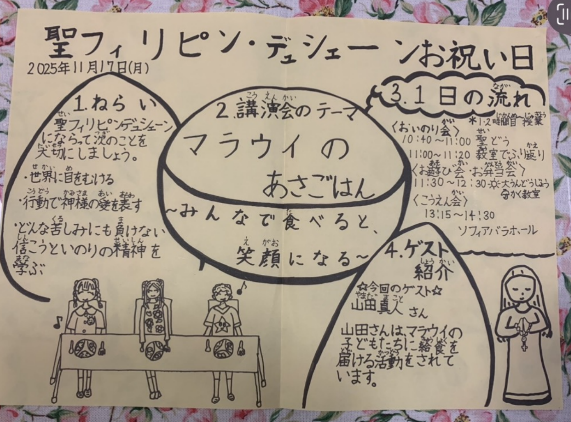 聖フィリピン・デュシェーンお祝い日
2025年11月17日(月)
1.ねらい
聖フィリピンデュシェーン
にならって次のことを
大切にしましょう。
・世界に目をむける
・行動で神様の愛を表す
・どんな苦しみにも負けない
信こうといのりの精神を
学ぶ
2.講演会のテーマ
マラウイの
あさごはん
～みんなで食べると、
笑顔になる～
3.1日の流れ
＊1・2時間目～授業
〈おいのり会〉
10:40～11:00 聖どう
11:00～11:20 教室でふり返り
〈お遊び会・お弁当会〉
11:30～12:30
〈こうえん会〉
13:15～14:30
ソフィアバラホール
4.ゲスト
紹介
☆今回のゲスト☆
山田真人さん
山田さんは、マラウイの
子どもたちに給食を
届ける活動をされて
います。